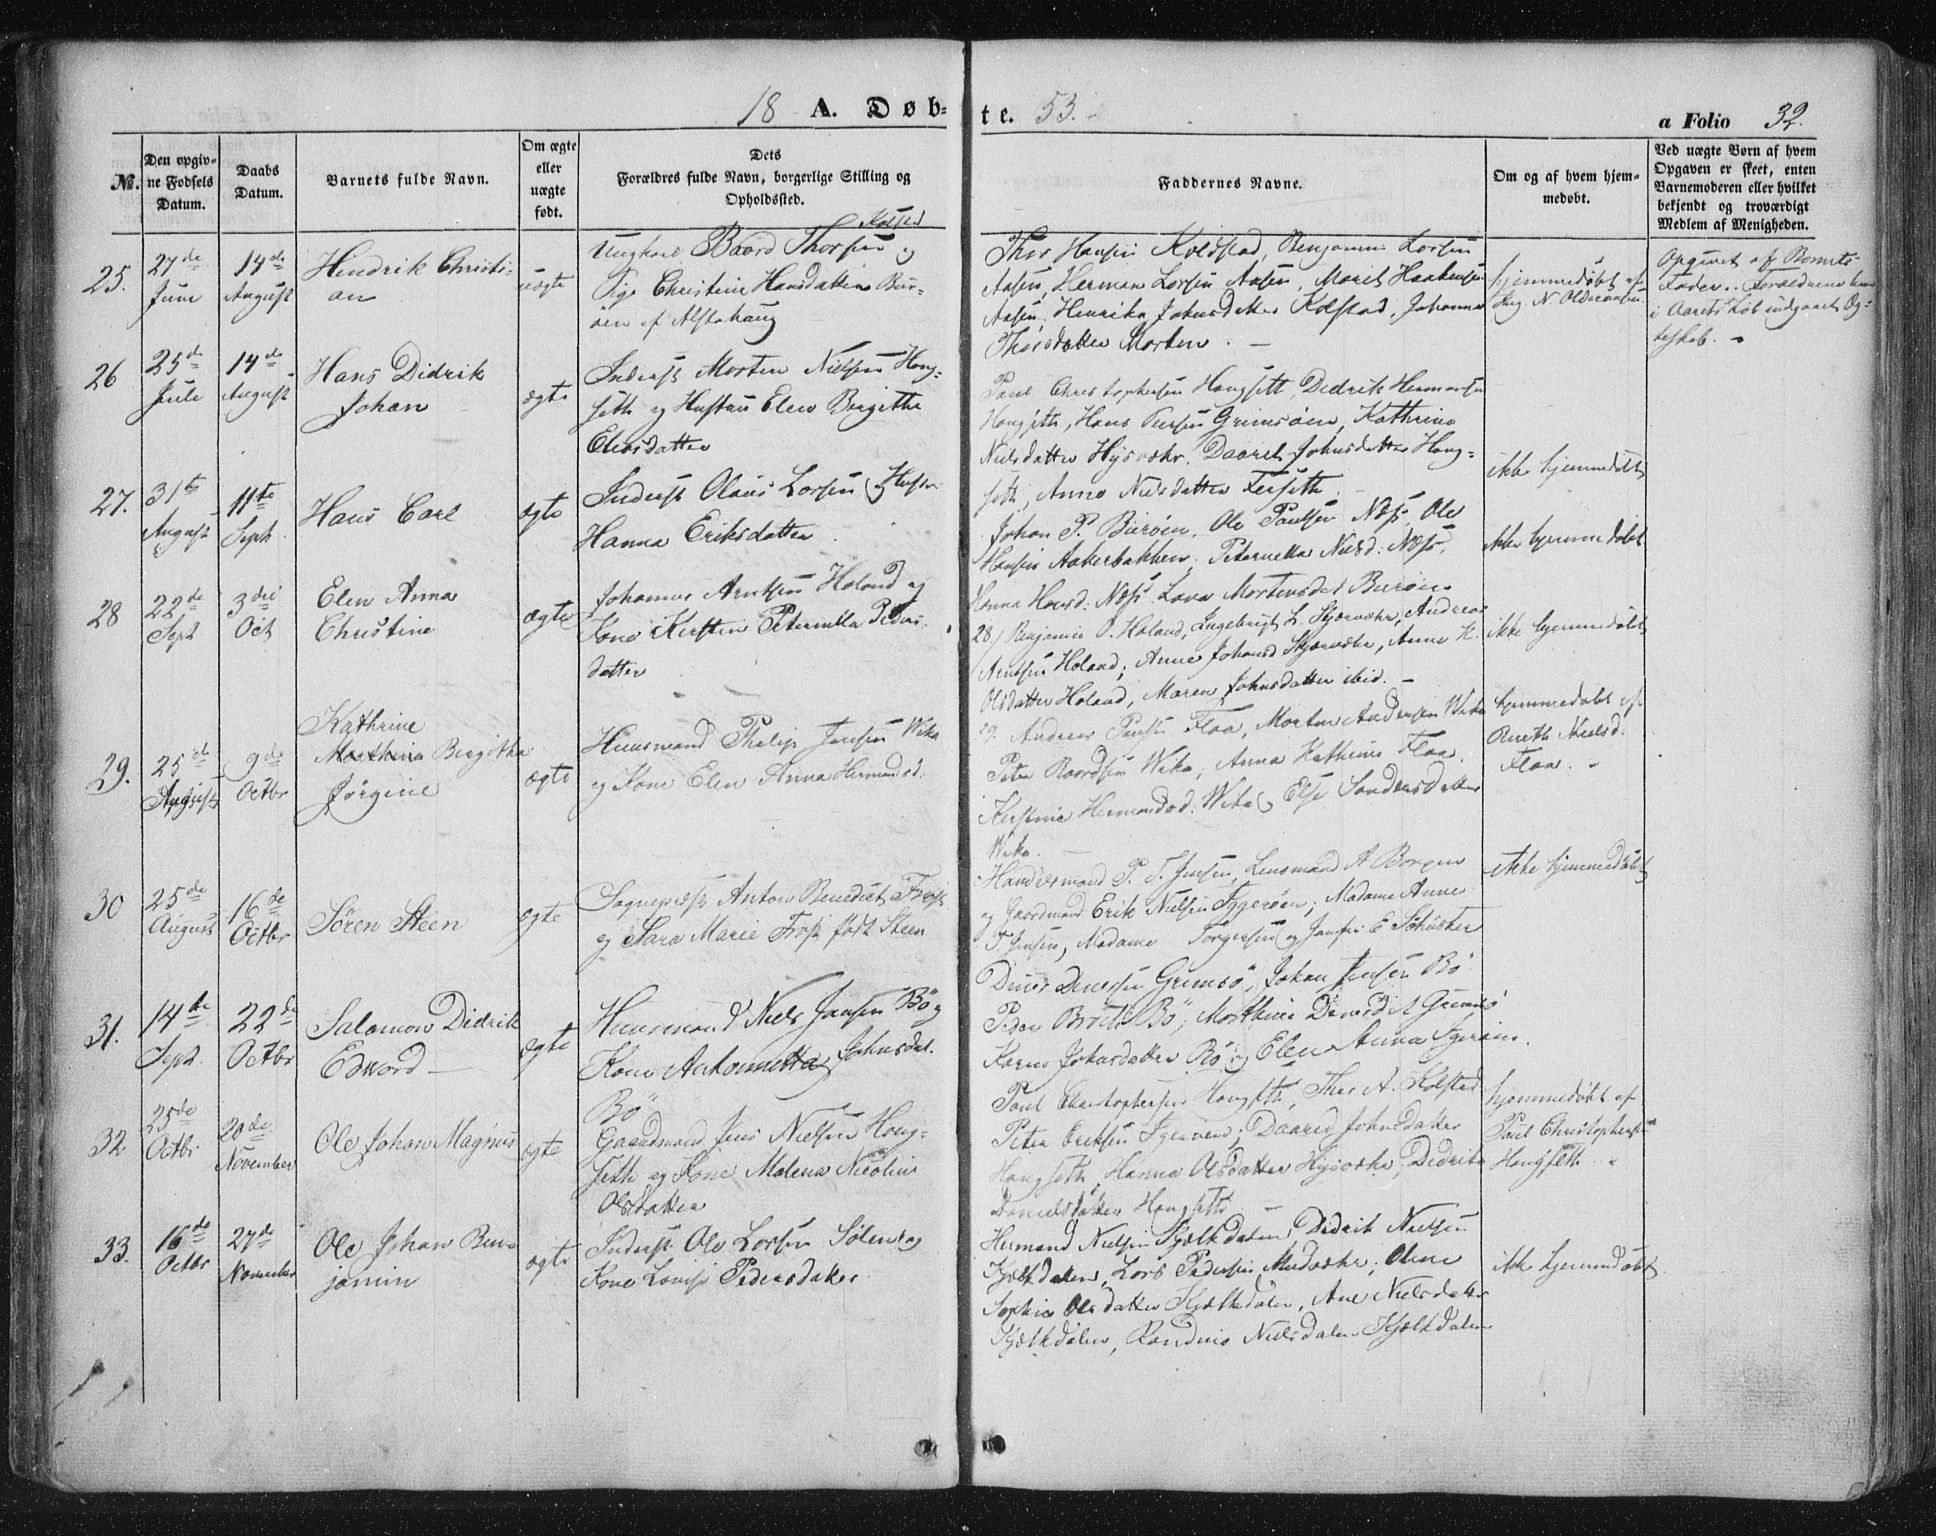 18 A. Døb-
te. 53.
a Folio 32.
No.
Den opgiv-
ne Fødsels
Datum.
Daabs
Datum.
Barnets fulde Navn.
Om ægte
eller
uægte
født.
Dets
Forældres fulde Navn, borgerlige Stilling og
Opholdssted.
Faddernes Navne.
Om og af hvem hjem-
medøbt.
Ved uægte Børn af hvem
Opgaven er skeet, enten
Barnemoderen eller hvilket
bekjendt og troværdigt
Medlem af Menigheden.
25.
27de
Juni
14de
August
Hendrik Christi-
an
uægte
Kolstad
Ungkarl Baard Thorsen og
Pige Christine Hansdatter Bur-
öen af Alstahaug
Thor Hansen Kolstad, Benjamin Larsen
Aasen, Herman Larsen Aasen, Maret Haakensen
Aasen, Henrika Johnsdatter Kolstad, Johanna
Thorsdatter Morten. -
hjemmedøbt af
N. Oldernæsen
Opgivet af Barnets
Fader. Forældrene have
i Aarets Løb indgaaet Æg-
teskab. -
26
25de
Juli
14de
August
Hans Didrik
Johan
ægte
Inderst Morten Nielsen Hong-
seth og Hustru Elen Bergithe
Eliasdatter
Paul Christophersen Hongseth, Didrik Hermansen
Hongseth, Hans Grimsöen, Kathrine
Nielsdatter Hysvær, Daaret Johnsdatter Hong-
seth, Anne Nielsdatter Forseth.
ikke hjemmedøbt
27.
31te
August
11te
Sept.
Hans Carl
ægte
Inderst Olaus Larsen og Hustru
Hanna Eriksdatter
Johan P. Buröen, Ole Paulsen Næss, Ole
Hansen Aakerbakken, Peternella Nielsd: Næss,
Hanna Hansd: Næss. Lava Mortensdat Buröen
ikke hjemmedøbt
28
22de
Sept
3die
Oct
Elen Anna
Christine
ægte
Johannes Arntsen Holand og
Kone Kirsten Peternella Peders-
datter
28) Benjamin O. Holand, Ingebrigt L. Skjærvær, Andreas
Arntsen Holand; Anne Johansd Skjærvær, Anne H.
Olsdatter Holand, Maren Johnsdatter ibid. -
ikke hjemmedøbt
29.
25de
August
9de
Octbr
Kathrine
Marthina Bergitha
Jörgine
ægte
Huusmand Philip Jensen Wika
og Kone Elen Anna Hermansd.
29. Andreas Floa, Morten Andersen Wika
Peter Baardsen Wika, Anna Kathrine Floa,
Kirstine Hermansd: Wika og Else Sandersdatter
Wika. -
hjemmedøbt af
Nielsd.
Floa. -
30
25de
August
16de
Octbr
Sören Steen
ægte
Sognepræst Anton Benedict Frost
og Sara Marie Frost født Steen
Handelsmand P. T. Jensen, Lensmand A Borgen
og Gaardmand Erik Nielsen Iggeröen; Madame Anne
T. Jensen, Madame Torgersen og Jomfru E Schuster
ikke hjemmedøbt
31.
14de
Sept.
22de
Octbr
Salamon Didrik
Edvard -
ægte
Huusmand Niels Jansen Bö og
Kone Antonette Johnsdat.
Bö
Grimsö, Johan Jensen Bö
Peder Bö, Marthine Grimsö
Karen Johnsdatter Bö og Elen Anna Igeröen.
32
25de
Octbr
20de
November
Ole Johan Magnus
ægte
Gaardmand Jens Nielsen Hong-
seth og Kone Malena Nicoline
Olsdatter
Paul Christophersen Hongseth, Thor A. Kolstad
Peter Eriksen Igeröen; Daaret Johnsdatter
Hongseth, Hanna Olsdatter Hysvær, Didrika
Danielsdatter Hongseth -
hjemmedøbt af
Paul Christophersen
Hongseth. -
33.
16de
Octbr
27de
November
Ole Johan Ben-
jamin
ægte
Inderst Ole Larsen Sölen og
Kone Lovise Pedersdatter
Hermand Nielsen Kjelkdalen, Didrik Nielsen
Kjelkdalen, Lars Pedersen; Olene
Sophie Olsdatter Kjelkdalen, Ane Nielsdatter
Kjelkdalen, Randine Nielsdatter Kjelkdalen
ikke hjemmedøbt